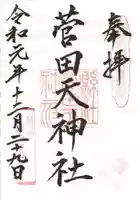 奉拝
菅田天神社
令和元年十二月二十九日